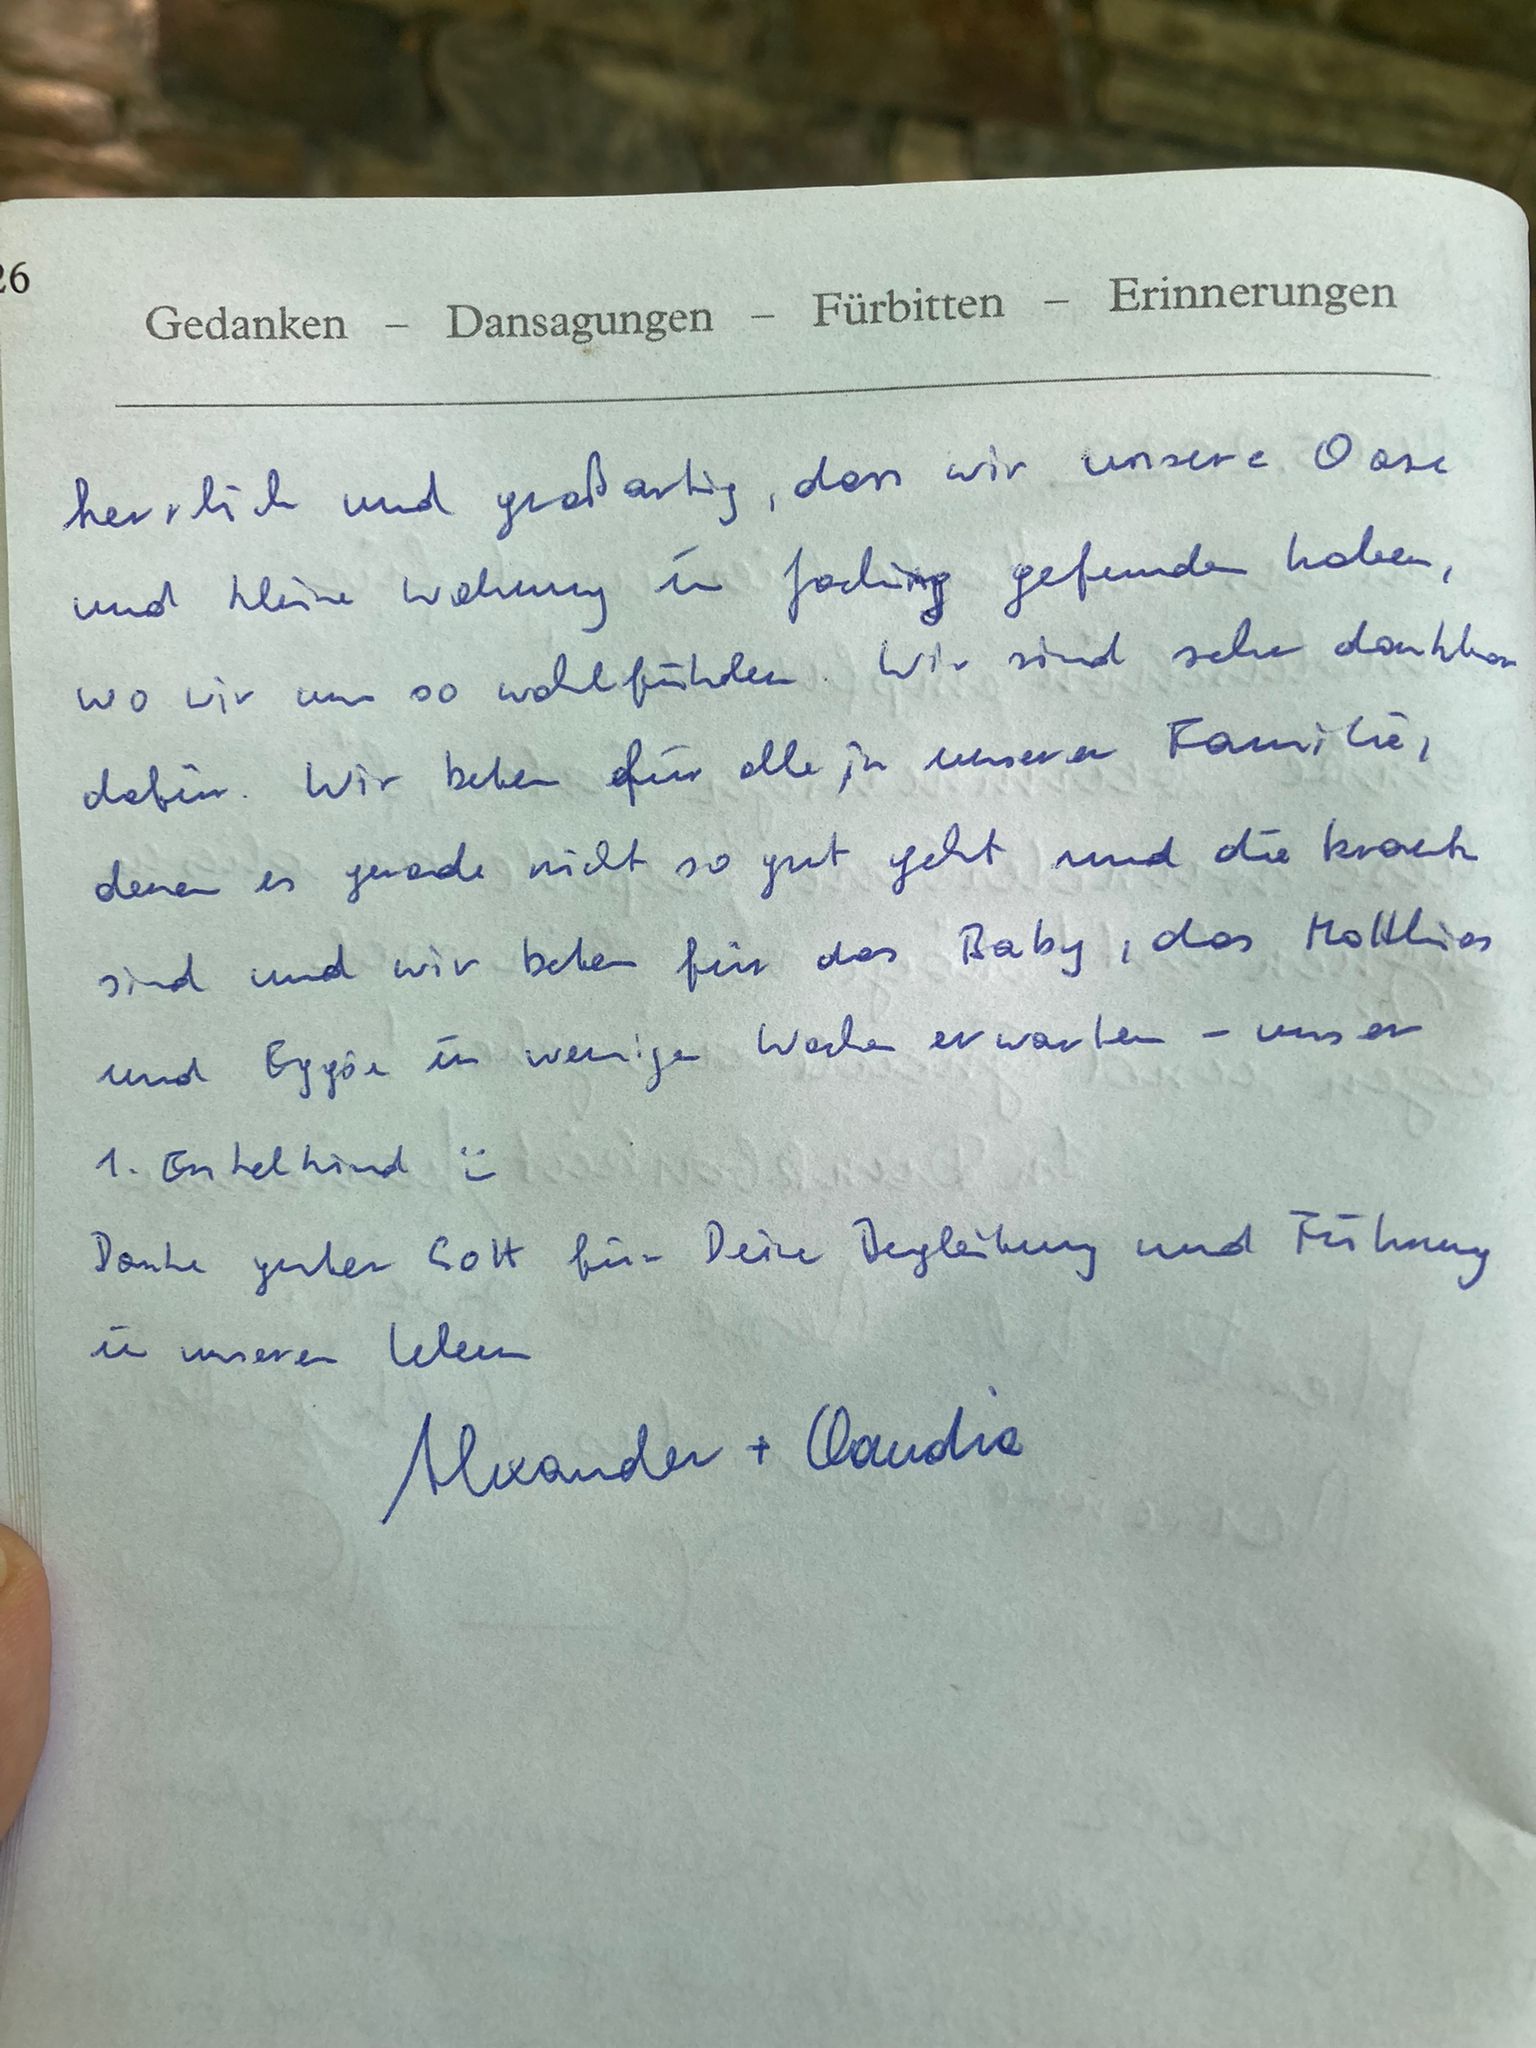 26
Gedanken – Dansagungen – Fürbitten – Erinnerungen
herrlich und großartig, dass wir unsere Oase
und kleine Wohnung in gefunden haben,
wo wir uns so wohlfühlen. Wir sind sehr dankbar
dafür. Wir beten für alle, in unserer Familie,
denen es gerade nicht so gut geht und die krank
sind und wir beten für das Baby, das Matthias
und in wenigen Wochen erwarten – unser
1. Enkelkind
Danke guter Gott für Deine Begleitung und Führung
in unserem Leben
Alexander + Claudia